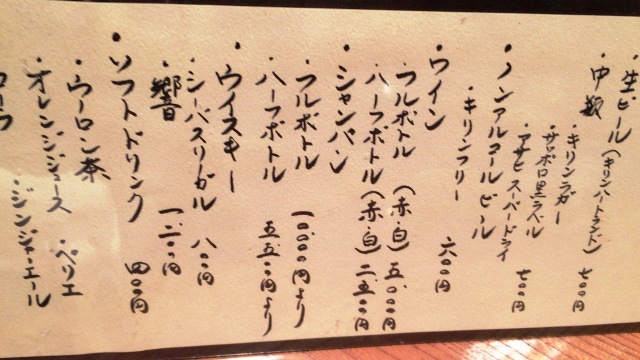 ・生ビール(キリンハートランド) 七〇〇円
・中瓶
・キリンラガー
・サッポロ黒ラベル
・アサヒスーパードライ 七〇〇円
・ノンアルコールビール
・キリンフリー 六〇〇円
・ワイン
・フルボトル(赤・白) 五、〇〇〇円
・ハーフボトル(赤・白) 二、五〇〇円
・シャンパン
・フルボトル 一〇、〇〇〇円より
・ハーフボトル 五、五〇〇円より
・ウイスキー
・シーバスリーガル 八〇〇円
・響 一、二〇〇円
・ソフトドリンク 四〇〇円
・ウーロン茶 ・ペリエ
・オレンジジュース ・ジンジャーエール
コーラ